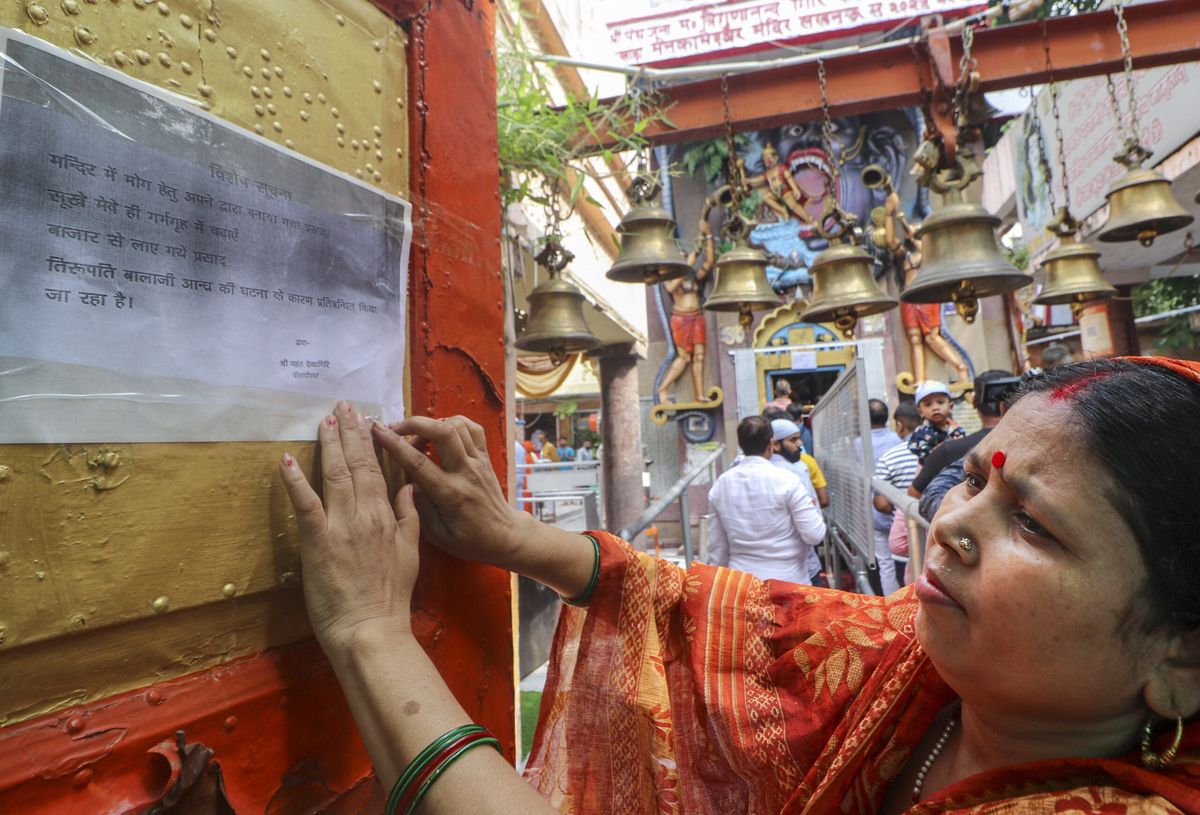 पंच जूना म०
मनकामेश्वर मंदिर लखनऊ
विशेष सूचना
मन्दिर में भोग हेतु अपने द्वारा बनाया गया प्रसाद/
सूखे मेवे ही गर्भगृह में चढ़ाऐं
बाजार से लाए गये प्रसाद
तिरूपति बालाजी आन्ध्र की घटना के कारण प्रतिबन्धित किया
जा रहा है।
द्वारा-
श्री महंत देव्यागिरि
पीठाधीश्वर